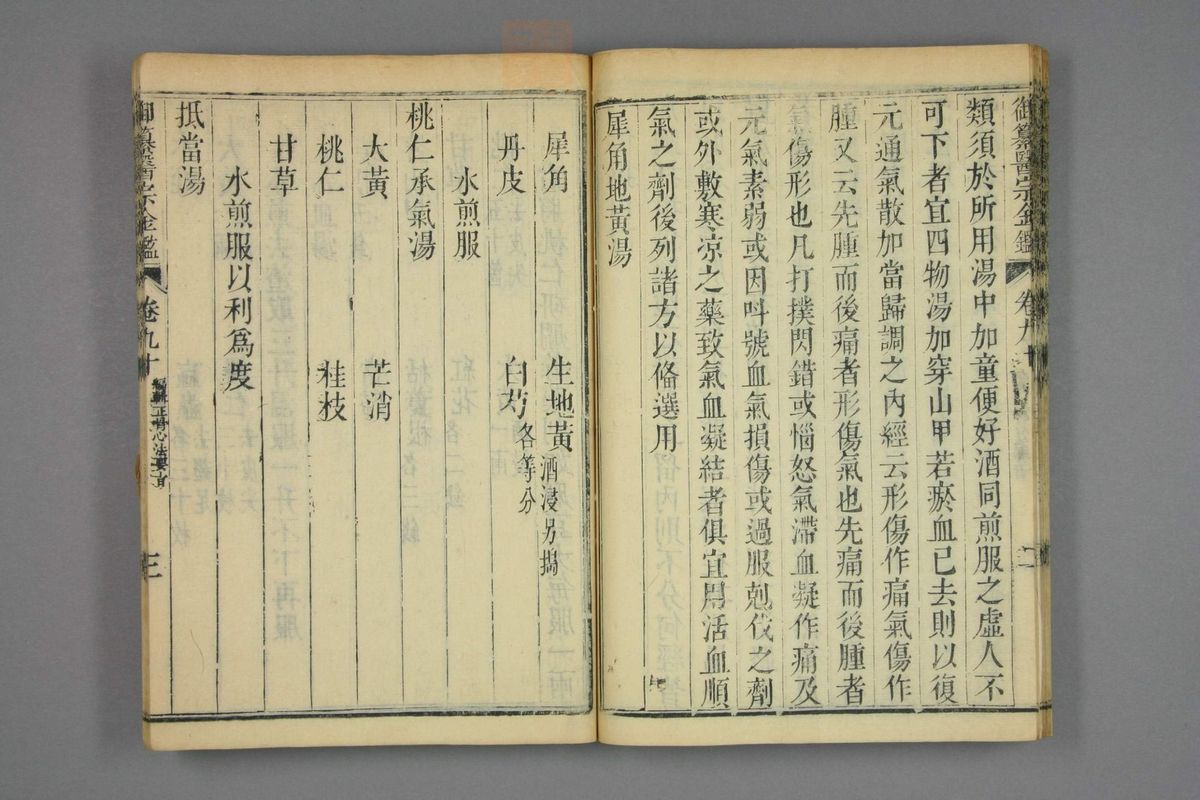 御纂醫宗金鑑 卷九十 二
類須於所用湯中加童便好酒同煎服之虛人不
可下者宜四物湯加穿山甲若瘀血已去則以復
元通氣散加當歸調之內經云形傷作痛氣傷作
腫又云先腫而後痛者形傷氣也先痛而後腫者
氣傷形也凡打撲閃錯或惱怒氣滯血凝作痛及
元氣素弱或因呌號血氣損傷或過服剋伐之劑
或外敷寒凉之藥致氣血凝結者俱宜用活血順
氣之劑後列諸方以俻選用
犀角地黃湯
犀角 生地黃酒浸另搗
丹皮 白芍各等分
水煎服
桃仁承氣湯
大黃 芒消
桃仁 桂枝
甘草
水煎服以利爲度
抵當湯
御纂醫宗金鑑 卷九十 編輯正骨心法要旨 三